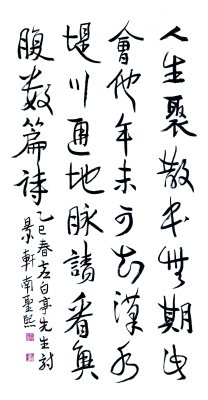 人生聚散本無期此
會他年未可知漢水
堤川通地脈請看魚
腹數篇詩
乙巳春白亭先生詩
景軒南聖熙